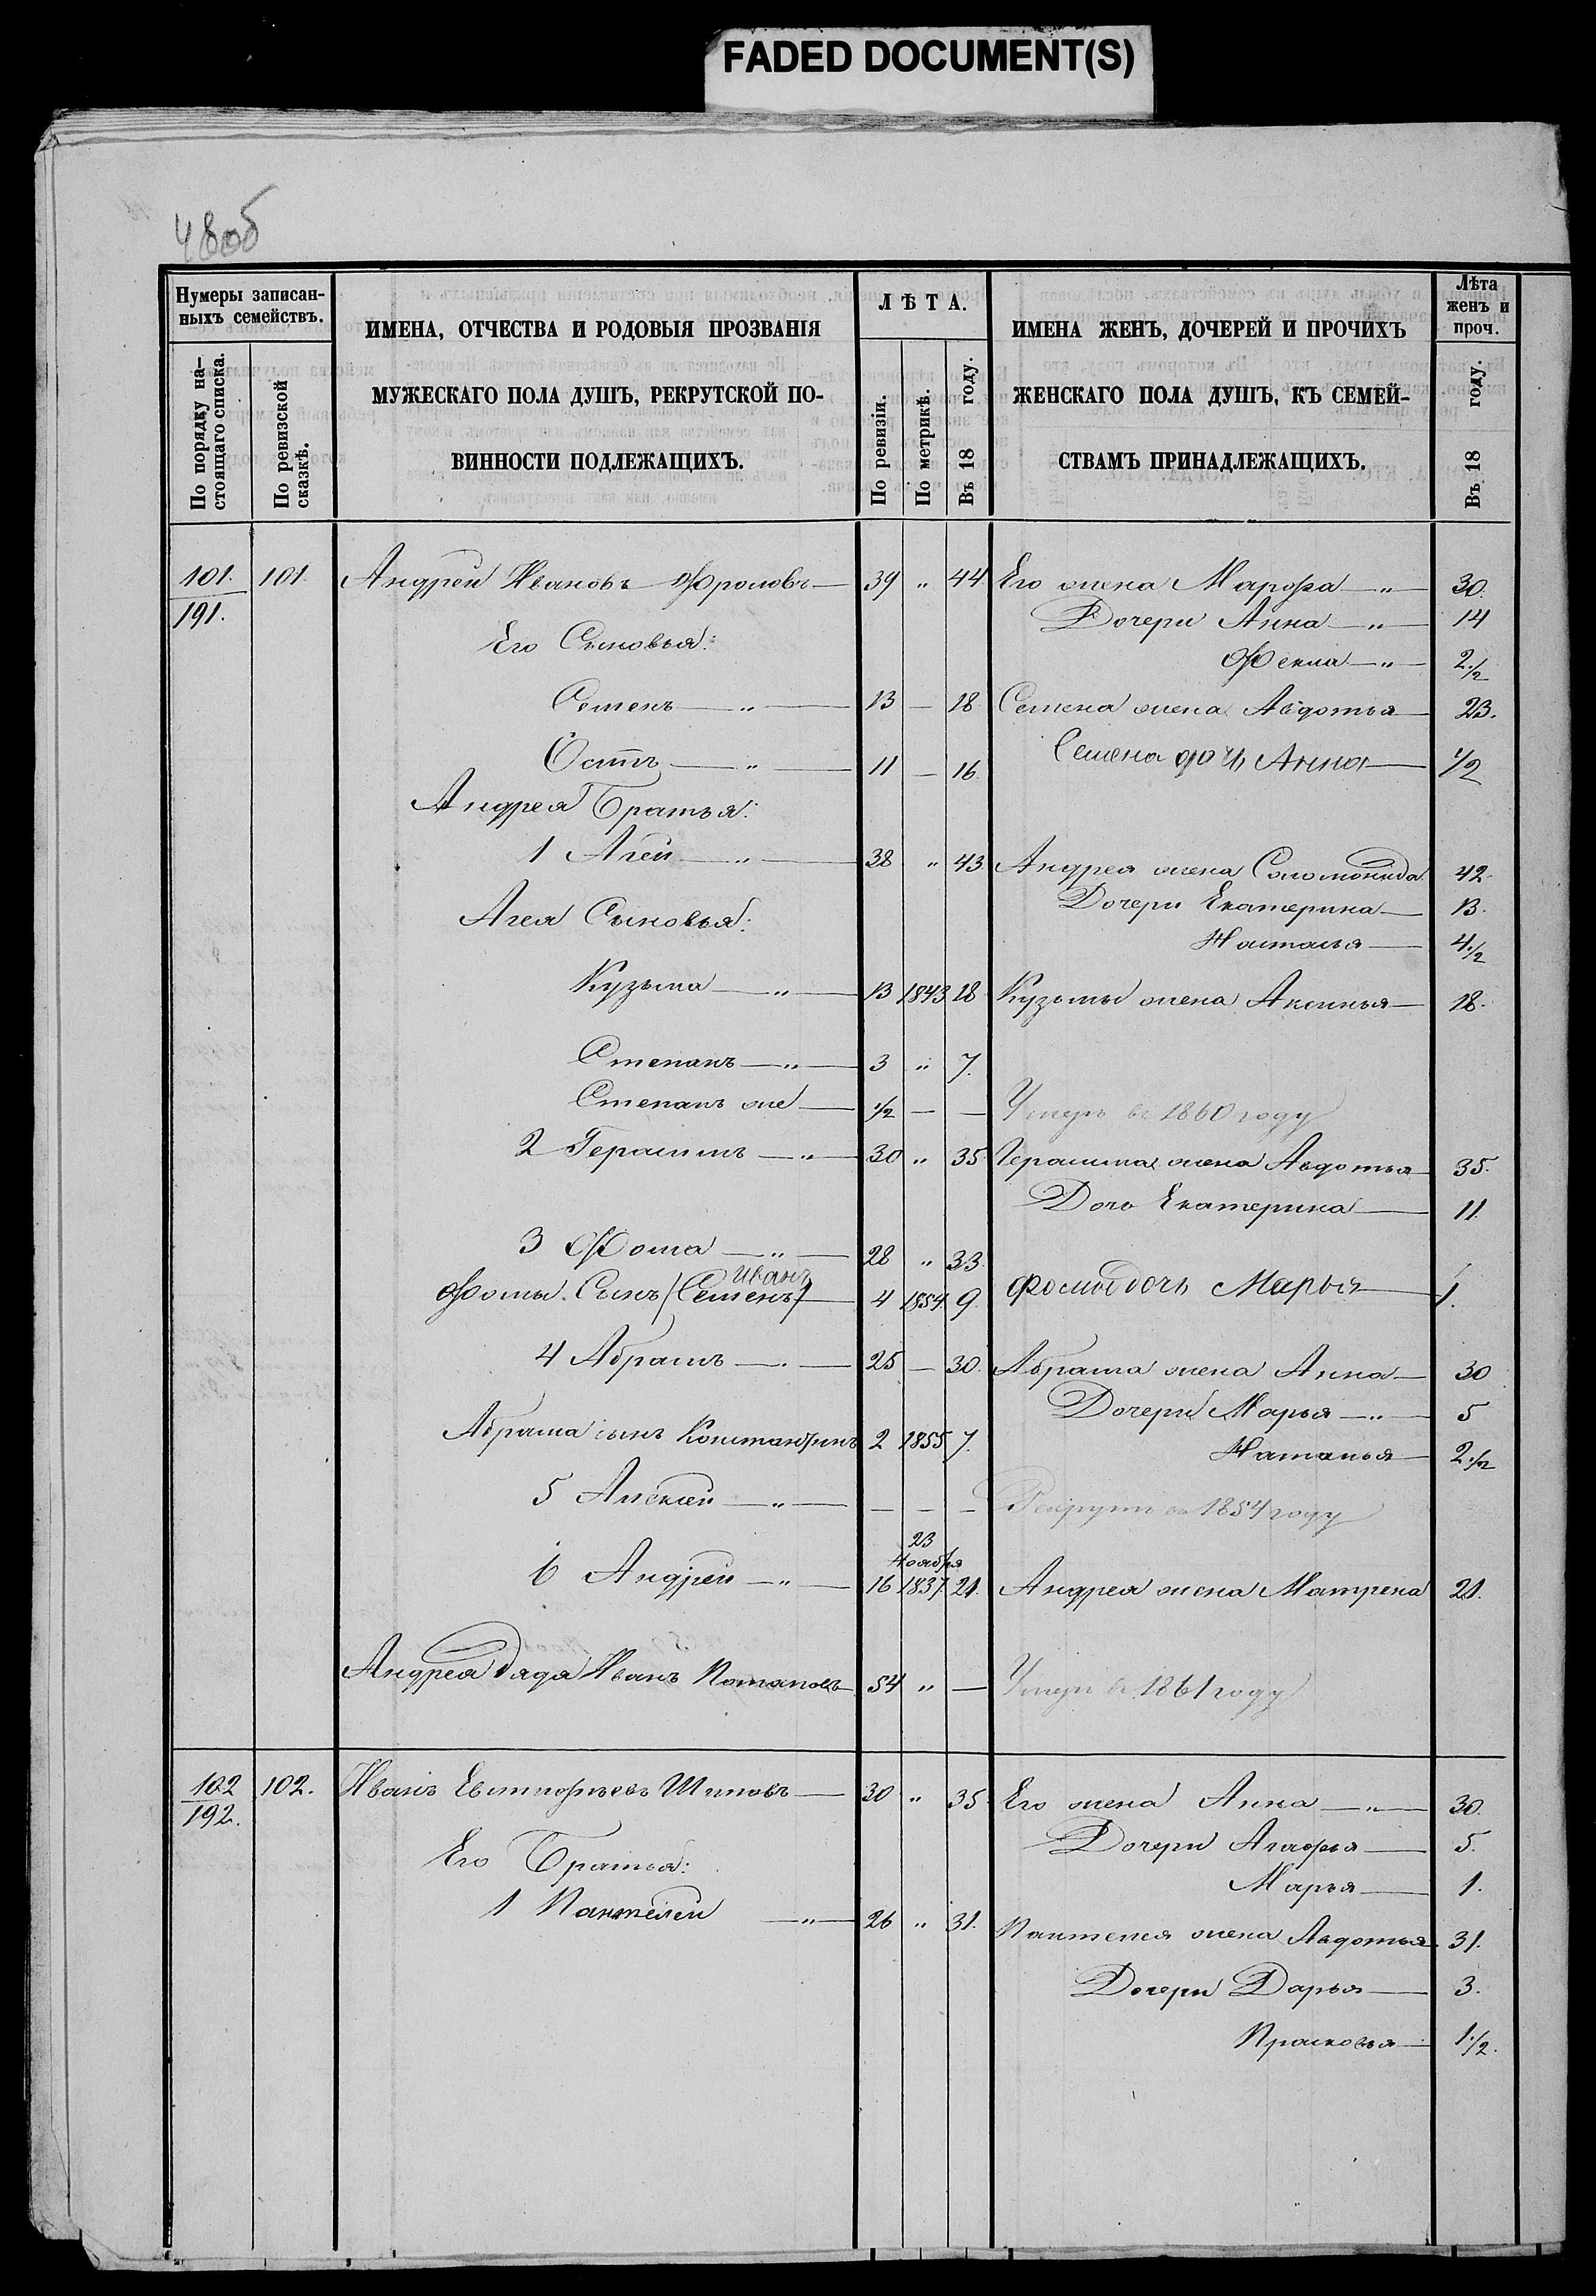 FADED DOCUMENT(S)
48об
Нумеры записан-
ныхъ семействъ.
По порядку на-
стоящаго списка.
По ревизской
сказкѣ.
ИМЕНА, ОТЧЕСТВА И РОДОВЫЯ ПРОЗВАНІЯ
МУЖЕСКАГО ПОЛА ДУШЪ, РЕКРУТСКОЙ ПО-
ВИННОСТИ ПОДЛЕЖАЩИХЪ.
ЛѢТА.
По ревизіи.
По метрикѣ.
Въ 18 году.
ИМЕНА ЖЕНЪ, ДОЧЕРЕЙ И ПРОЧИХЪ
ЖЕНСКАГО ПОЛА ДУШЪ, КЪ СЕМЕЙ-
СТВАМЪ ПРИНАДЛЕЖАЩИХЪ.
Лѣта
женъ и
проч.
Въ 18 году.
101. 101. Андрей Ивановъ Фроловъ — 39 " 44 Его жена Марфа — " — 30.
191. Дочери Анна — " — 14
Его Сыновья:
Фекла — " — 2 1/2
Семенъ — " — 13 — 18 Семена жена Авдотья — 23.
Осипъ — " — 11 — 16. Семена дочь Анна — 1/2
Андрея Братья:
1 Агей — " — 38 " 43. Андрея жена Соломонида 42.
Дочери Екатерина — 13.
Агея Сыновья:
Наталья — 4 1/2
Кузьма — " — 13 1843 18 Кузьмы жена Аксинья — 18.
Степанъ — " — 3 " 7.
Степанъ же — 1/2 — — Умеръ въ 1860 году
2 Герасимъ — " — 30 " 35 Герасима жена Авдотья — 35.
Дочь Екатерина — 11
3 Фома — " — 28 " 33.
Иванъ
Фомы Сынъ (Семенъ) — 4 1854 9. Фомы дочь Марья — 1.
4 Абрамъ — " — 25 — 30. Абрама жена Анна — 30
Дочери Марья — " — 5
Абрама сынъ Константинъ 2 1855 7.
Наталья — 2 1/2
5 Алексей — " — — — — Рекрутъ въ 1854 году
23
Ноября
6 Андрей — " — 16 1837 21. Андрея жена Матрена 21.
Андрея дядя Иванъ Потаповъ 54 " — Умеръ въ 1861 году
102 102. Иванъ Евстифьевъ Шиповъ — 30 " 35. Его жена Анна — " — 30.
192.
Дочери Агафья — 5.
Его Братья:
Марья — 1.
1 Пантелей — " — 26 " 31. Пантелея жена Авдотья 31.
Дочери Дарья — 3.
Прасковья — 1 1/2.